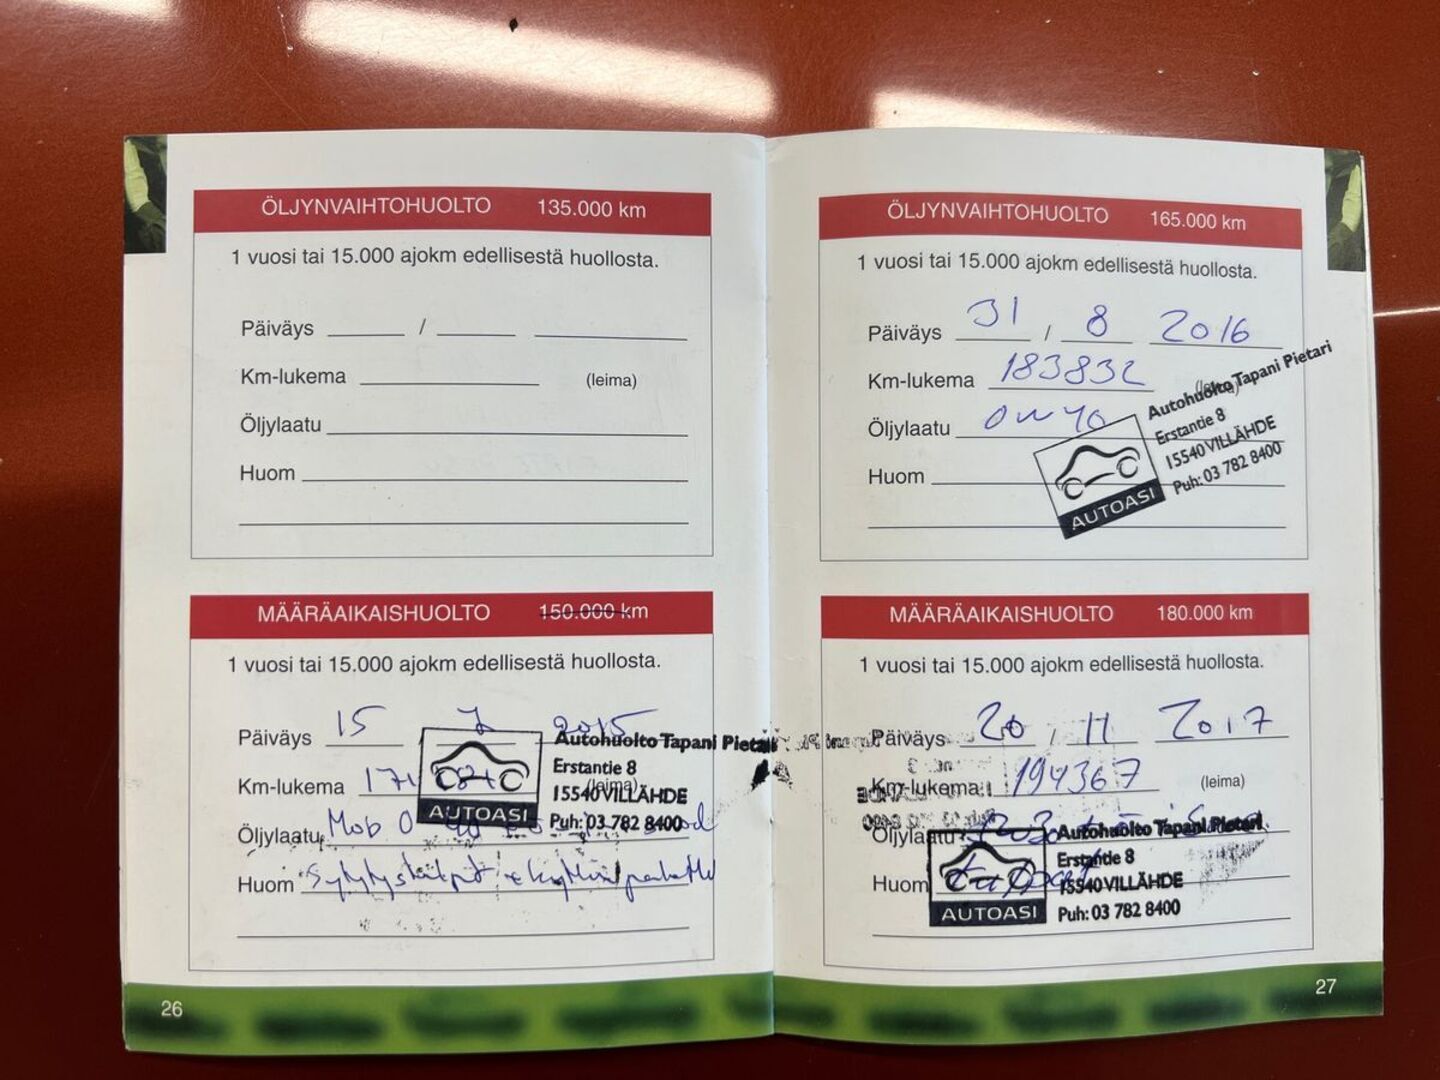 ÖLJYNVAIHTOHUOLTO 135.000 km
1 vuosi tai 15.000 ajokm edellisestä huollosta.
Päiväys /
Km-lukema (leima)
Öljylaatu
Huom
MÄÄRÄAIKAISHUOLTO 150.000 km
1 vuosi tai 15.000 ajokm edellisestä huollosta.
Päiväys 15 2015
Autohuolto Tapani Pietari
Km-lukema (leima)
Erstantie 8
15540 VILLÄHDE
AUTOASI
Puh: 03 782 8400
Öljylaatu Mob 0
Huom
26
ÖLJYNVAIHTOHUOLTO 165.000 km
1 vuosi tai 15.000 ajokm edellisestä huollosta.
Päiväys 31 / 8 2016
Km-lukema 183832 (leima)
Öljylaatu 0W40
Huom
Autohuolto Tapani Pietari
Erstantie 8
15540 VILLÄHDE
Puh: 03 782 8400
AUTOASI
MÄÄRÄAIKAISHUOLTO 180.000 km
1 vuosi tai 15.000 ajokm edellisestä huollosta.
Päiväys 20 / 11 2017
Km-lukema 194367 (leima)
Öljylaatu
Huom
Autohuolto Tapani Pietari
Erstantie 8
15540 VILLÄHDE
AUTOASI
Puh: 03 782 8400
27